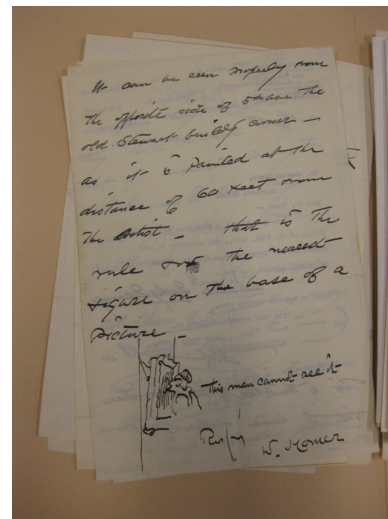 It can be seen properly from
the opposite side of 5th ave the
old Stewart build'g corner —
as it is painted at the
distance of 60 feet from
the artist — that is the
rule for the nearest
figure on the base of a
picture —
this man cannot see it
W. Homer